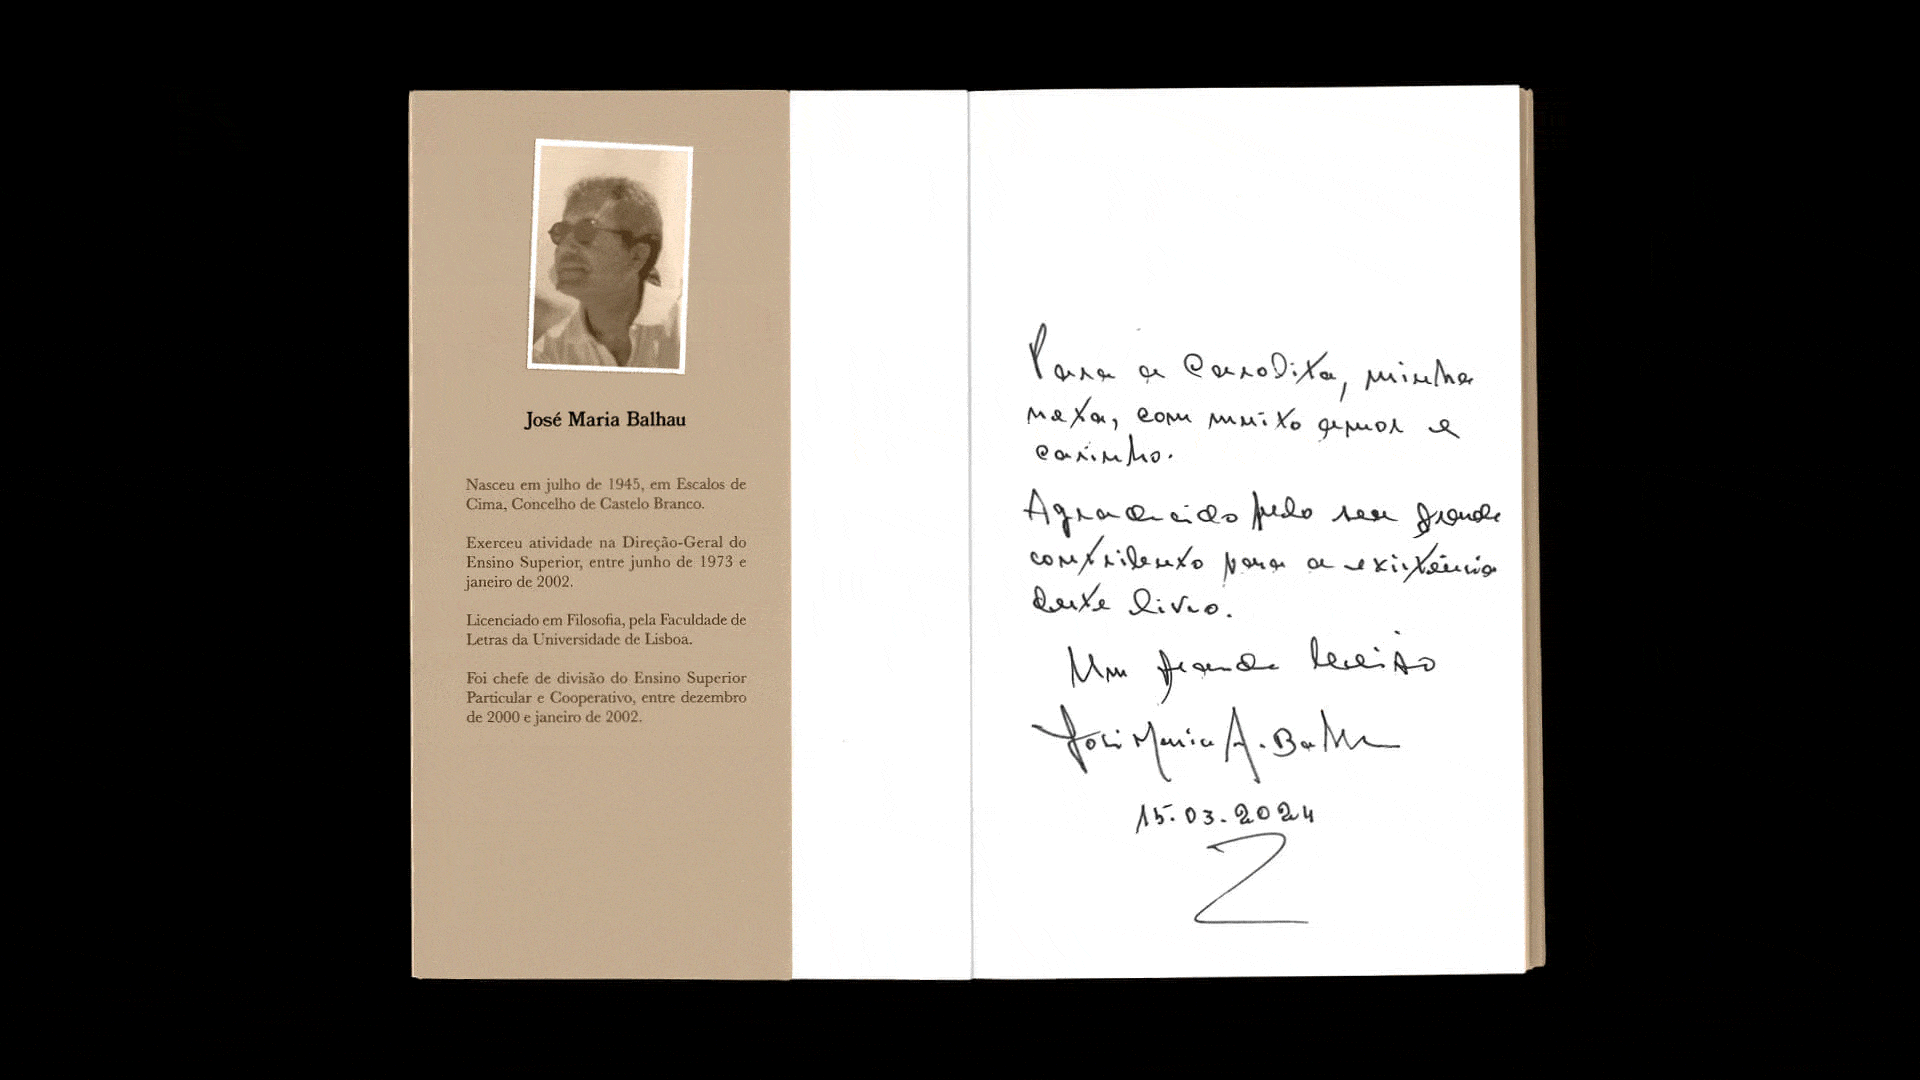 José Maria Balhau
Nasceu em julho de 1945, em Escalos de
Cima, Concelho de Castelo Branco.
Exerceu atividade na Direção-Geral do
Ensino Superior, entre junho de 1973 e
janeiro de 2002.
Licenciado em Filosofia, pela Faculdade de
Letras da Universidade de Lisboa.
Foi chefe de divisão do Ensino Superior
Particular e Cooperativo, entre dezembro
de 2000 e janeiro de 2002.
Para a Carolita, minha
neta, com muito amor e
carinho.
Agradecido pelo seu grande
contributo para a existência
deste livro.
Um grande beijão
José Maria A. Balhau
15.03.2024